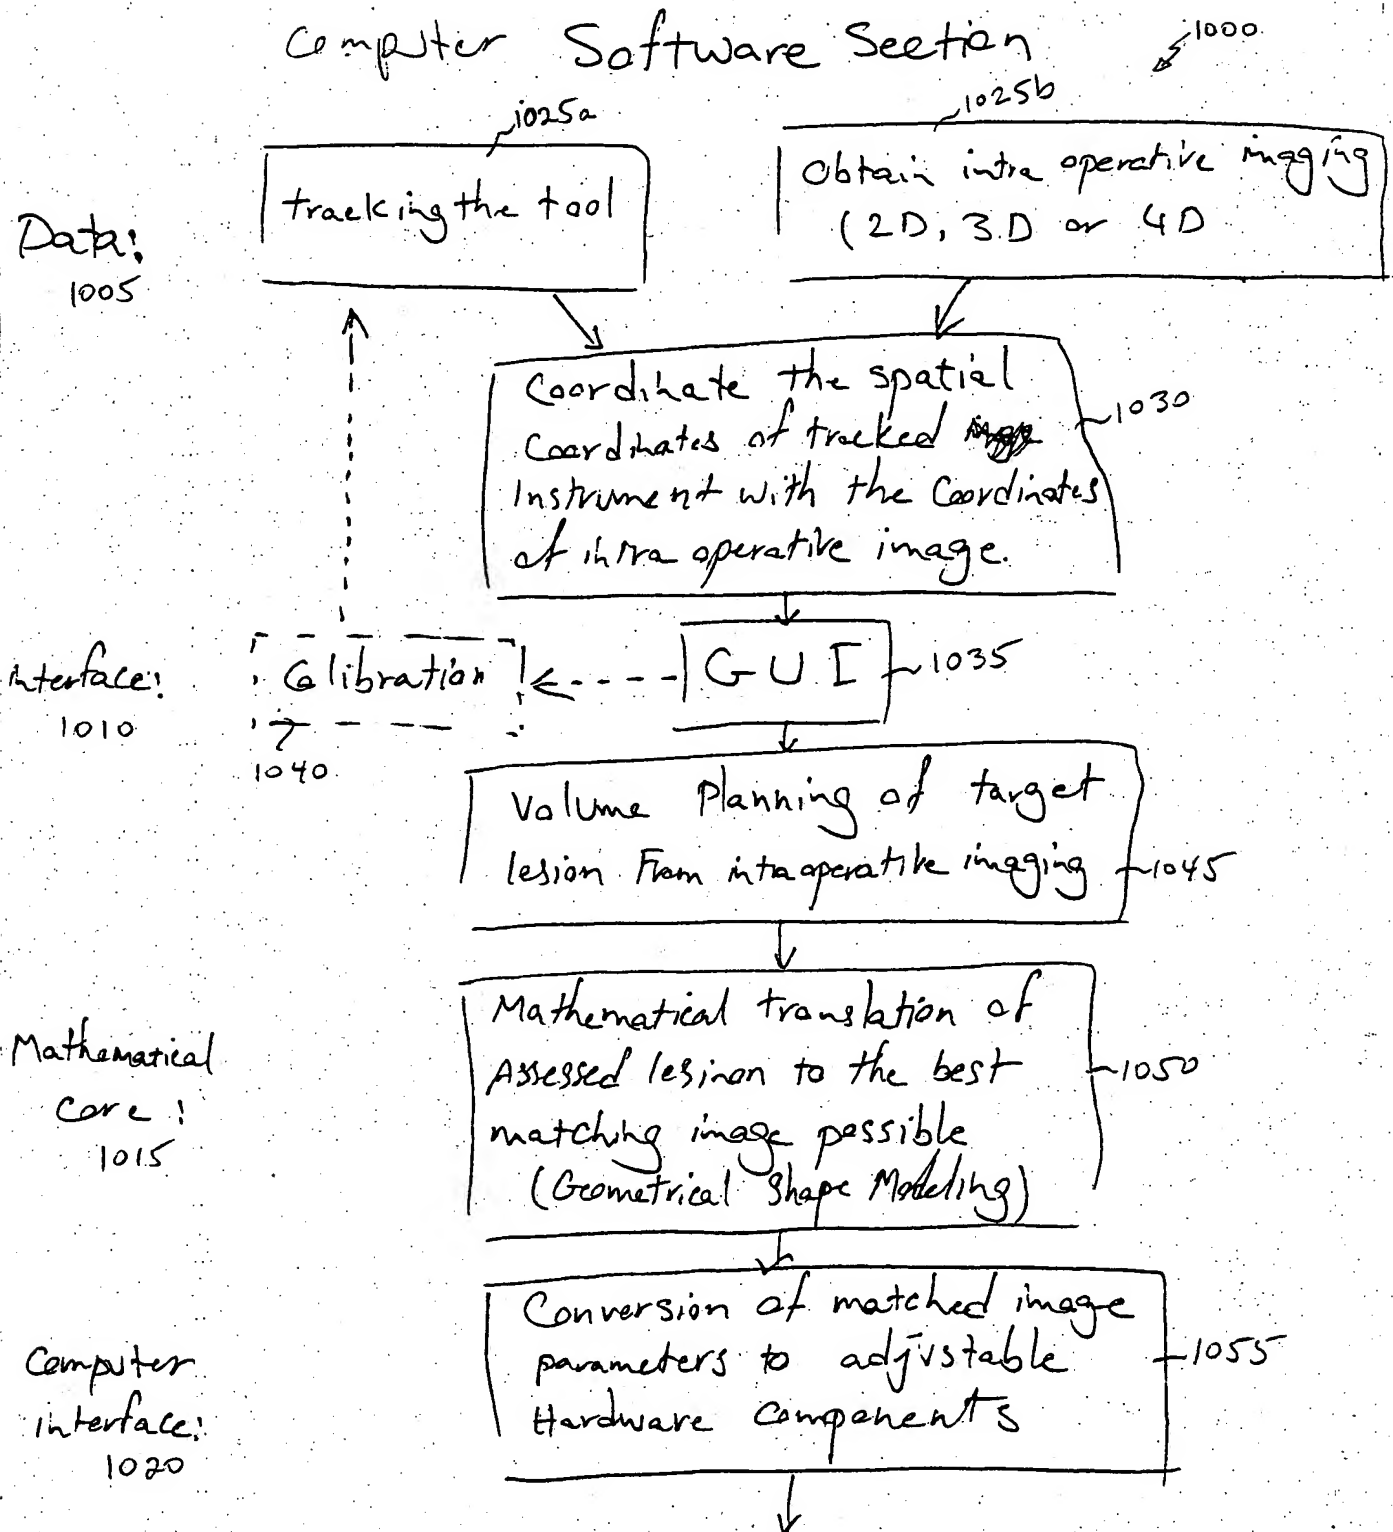 Computer Software Section
1000
1025a
1025b
tracking the tool
Obtain intra operative imaging
(2D, 3D or 4D
Data:
1005
Coordinate the spatial
Coordinates of tracked
Instrument with the Coordinates
of intra operative image.
1030
interface:
1010
Calibration
1040
GUI
1035
Volume Planning of target
lesion From intraoperative imaging
1045
Mathematical
Core:
1015
Mathematical translation of
Assessed lesinon to the best
matching image possible
(Geometrical Shape Modeling)
1050
Computer
interface:
1020
Conversion of matched image
parameters to adjustable
Hardware Components
1055